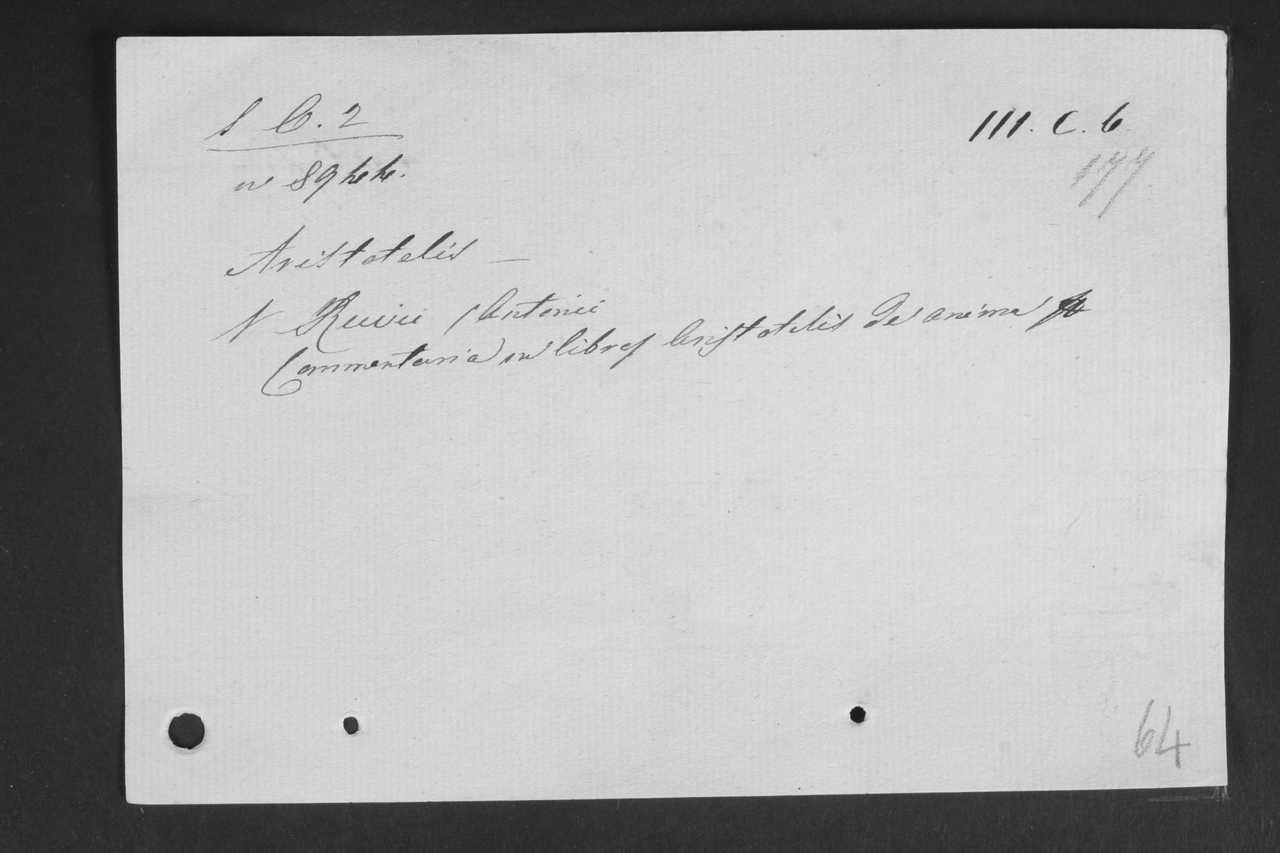 III. C. 6
177
n 8944.
Aristotelis —
V Ruvii (Antonii
Commentaria in libros Aristotelis de anima
64